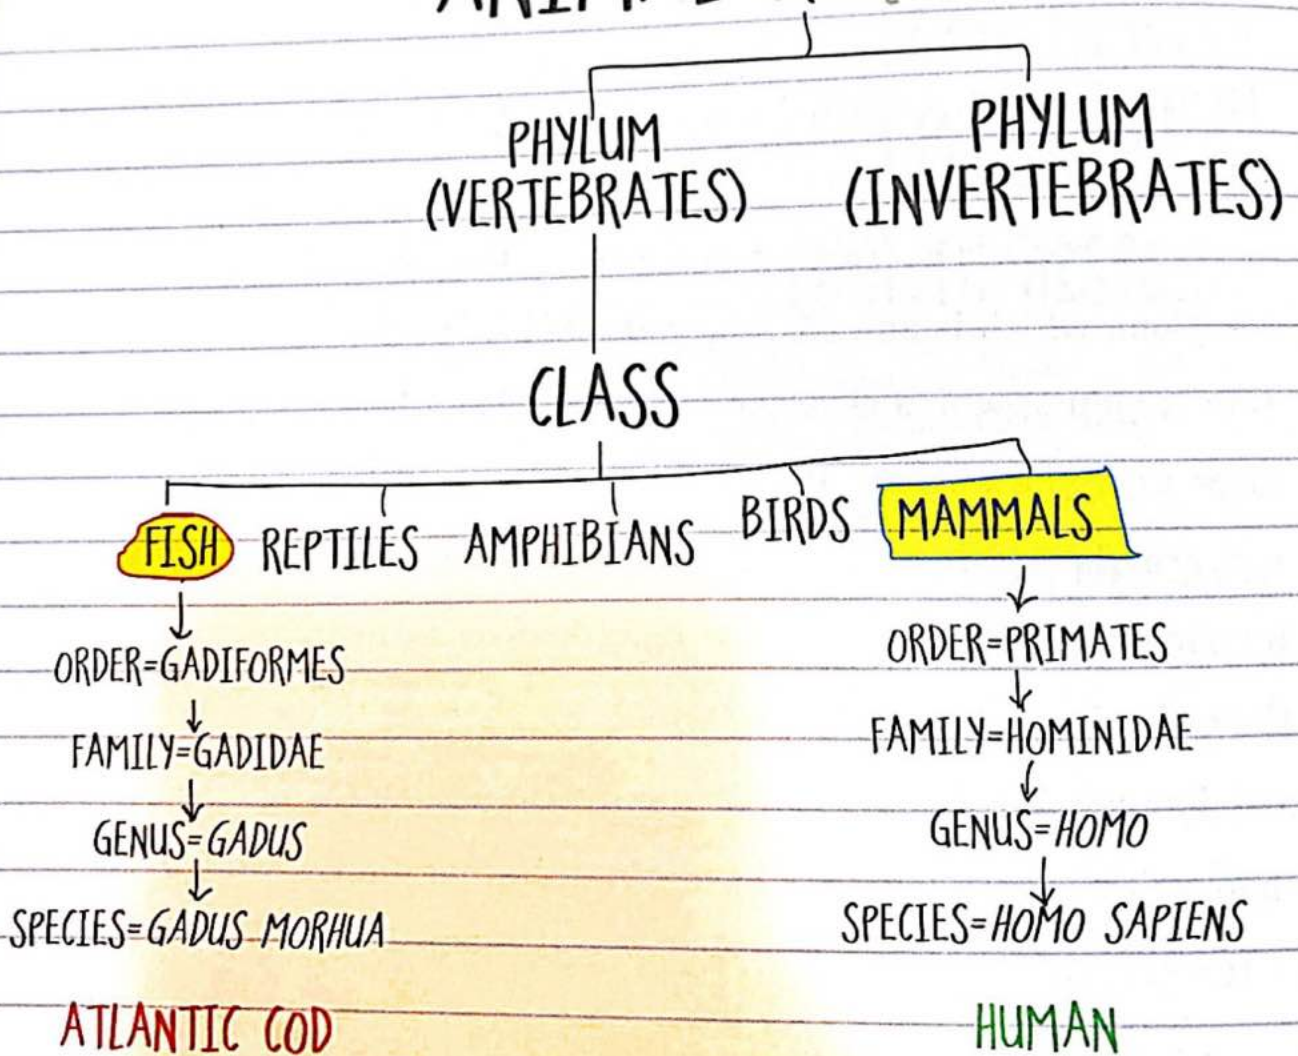 PHYLUM
(VERTEBRATES)
PHYLUM
(INVERTEBRATES)
CLASS
FISH REPTILES AMPHIBIANS BIRDS MAMMALS
ORDER=GADIFORMES
FAMILY=GADIDAE
GENUS=GADUS
SPECIES=GADUS MORHUA
ATLANTIC COD
ORDER=PRIMATES
FAMILY=HOMINIDAE
GENUS=HOMO
SPECIES=HOMO SAPIENS
HUMAN